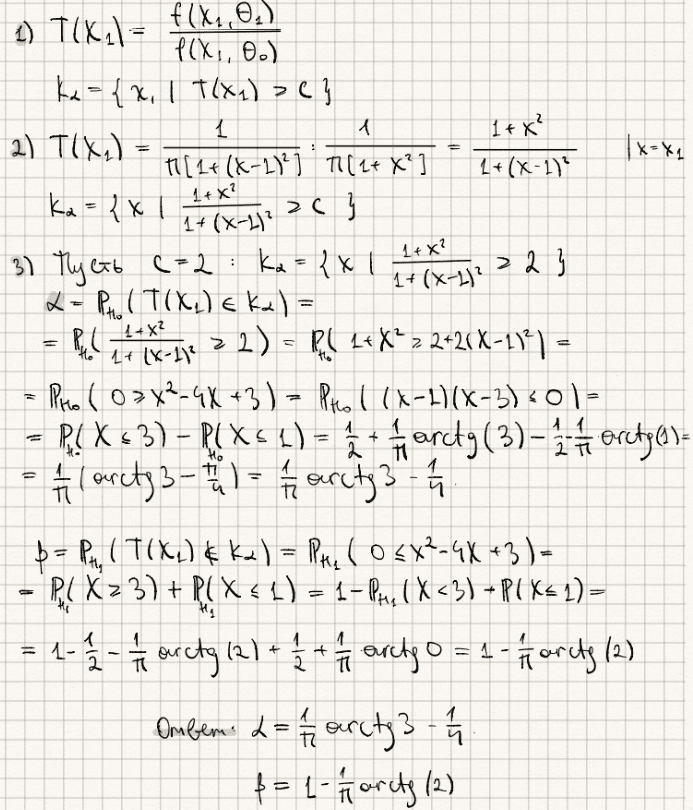 1) T(x₁) = f(x₁, θ₁) / f(x₁, θ₀)
K_α = { x₁ | T(x₁) ≥ c }
2) T(x₁) = 1 / (π[1+(x-1)²]) : 1 / (π[1+x²]) = (1+x²) / (1+(x-1)²) | x=x₁
K_α = { x | (1+x²) / (1+(x-1)²) ≥ c }
3) Пусть c=2 : K_α = { x | (1+x²) / (1+(x-1)²) ≥ 2 }
α = P_H₀( T(x₁) ∈ K_α ) =
= P_H₀( (1+x²) / (1+(x-1)²) ≥ 2 ) = P_H₀( 1+x² ≥ 2+2(x-1)² ) =
= P_H₀( 0 ≥ x²-4x+3 ) = P_H₀( (x-1)(x-3) ≤ 0 ) =
= P_H₀( X ≤ 3 ) - P_H₀( X ≤ 1 ) = 1/2 + 1/π arctg(3) - 1/2 - 1/π arctg(1) =
= 1/π ( arctg 3 - π/4 ) = 1/π arctg 3 - 1/4.
β = P_H₁( T(x₁) ∉ K_α ) = P_H₁( 0 ≤ x²-4x+3 ) =
= P_H₁( X ≥ 3 ) + P_H₁( X ≤ 1 ) = 1 - P_H₁( X < 3 ) + P( X ≤ 1 ) =
= 1 - 1/2 - 1/π arctg (2) + 1/2 + 1/π arctg 0 = 1 - 1/π arctg (2)
Ответ: α = 1/π arctg 3 - 1/4.
β = 1 - 1/π arctg (2)